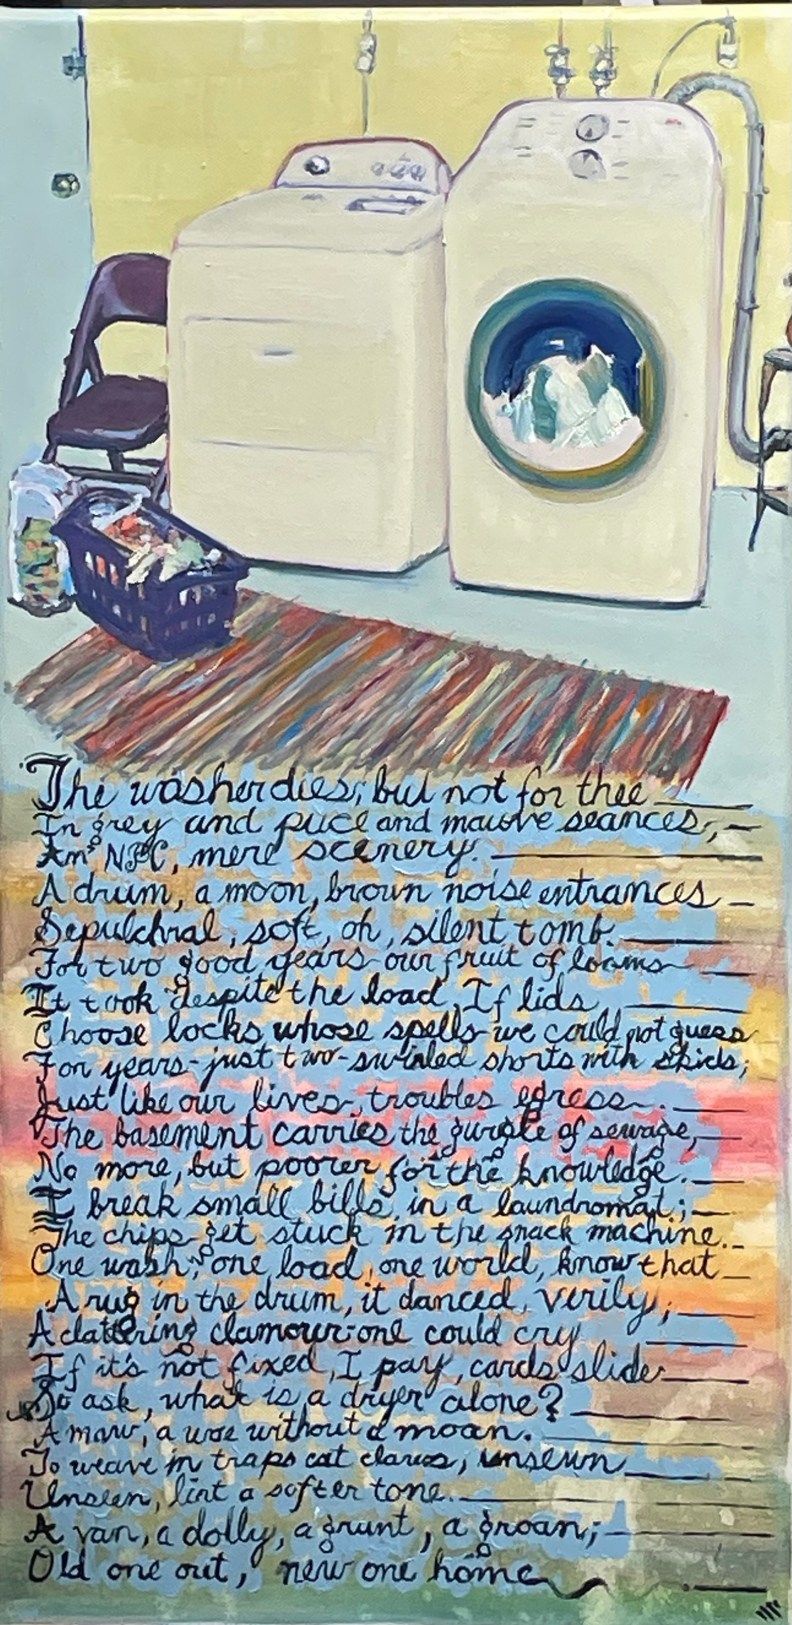 The washer dies; but not for thee
In grey and puce and mauve seances,
Am NPC, mere scenery.
A drum, a moon, brown noise entrances
Sepulchral, soft, oh, silent tomb.
For two good years our fruit of looms
It took despite the load. If lids
Choose locks whose spells we could not guess
For years-just two-swirled shorts with skids;
Just like our lives, troubles egress.
The basement carries the gurgle of sewage,
No more, but poorer for the knowledge.
I break small bills in a laundromat;
The chips get stuck in the snack machine.
One wash, one load, one world, know that
A rug in the drum, it danced, verily,
A clattering clamour-one could cry
If it's not fixed, I pay, cards slide
So ask, what is a dryer alone?
A maw, a woe without a moan.
To weave in traps cat claws, unsewn
Unseen, lint a softer tone.
A van, a dolly, a grunt, a groan;
Old one out, new one home